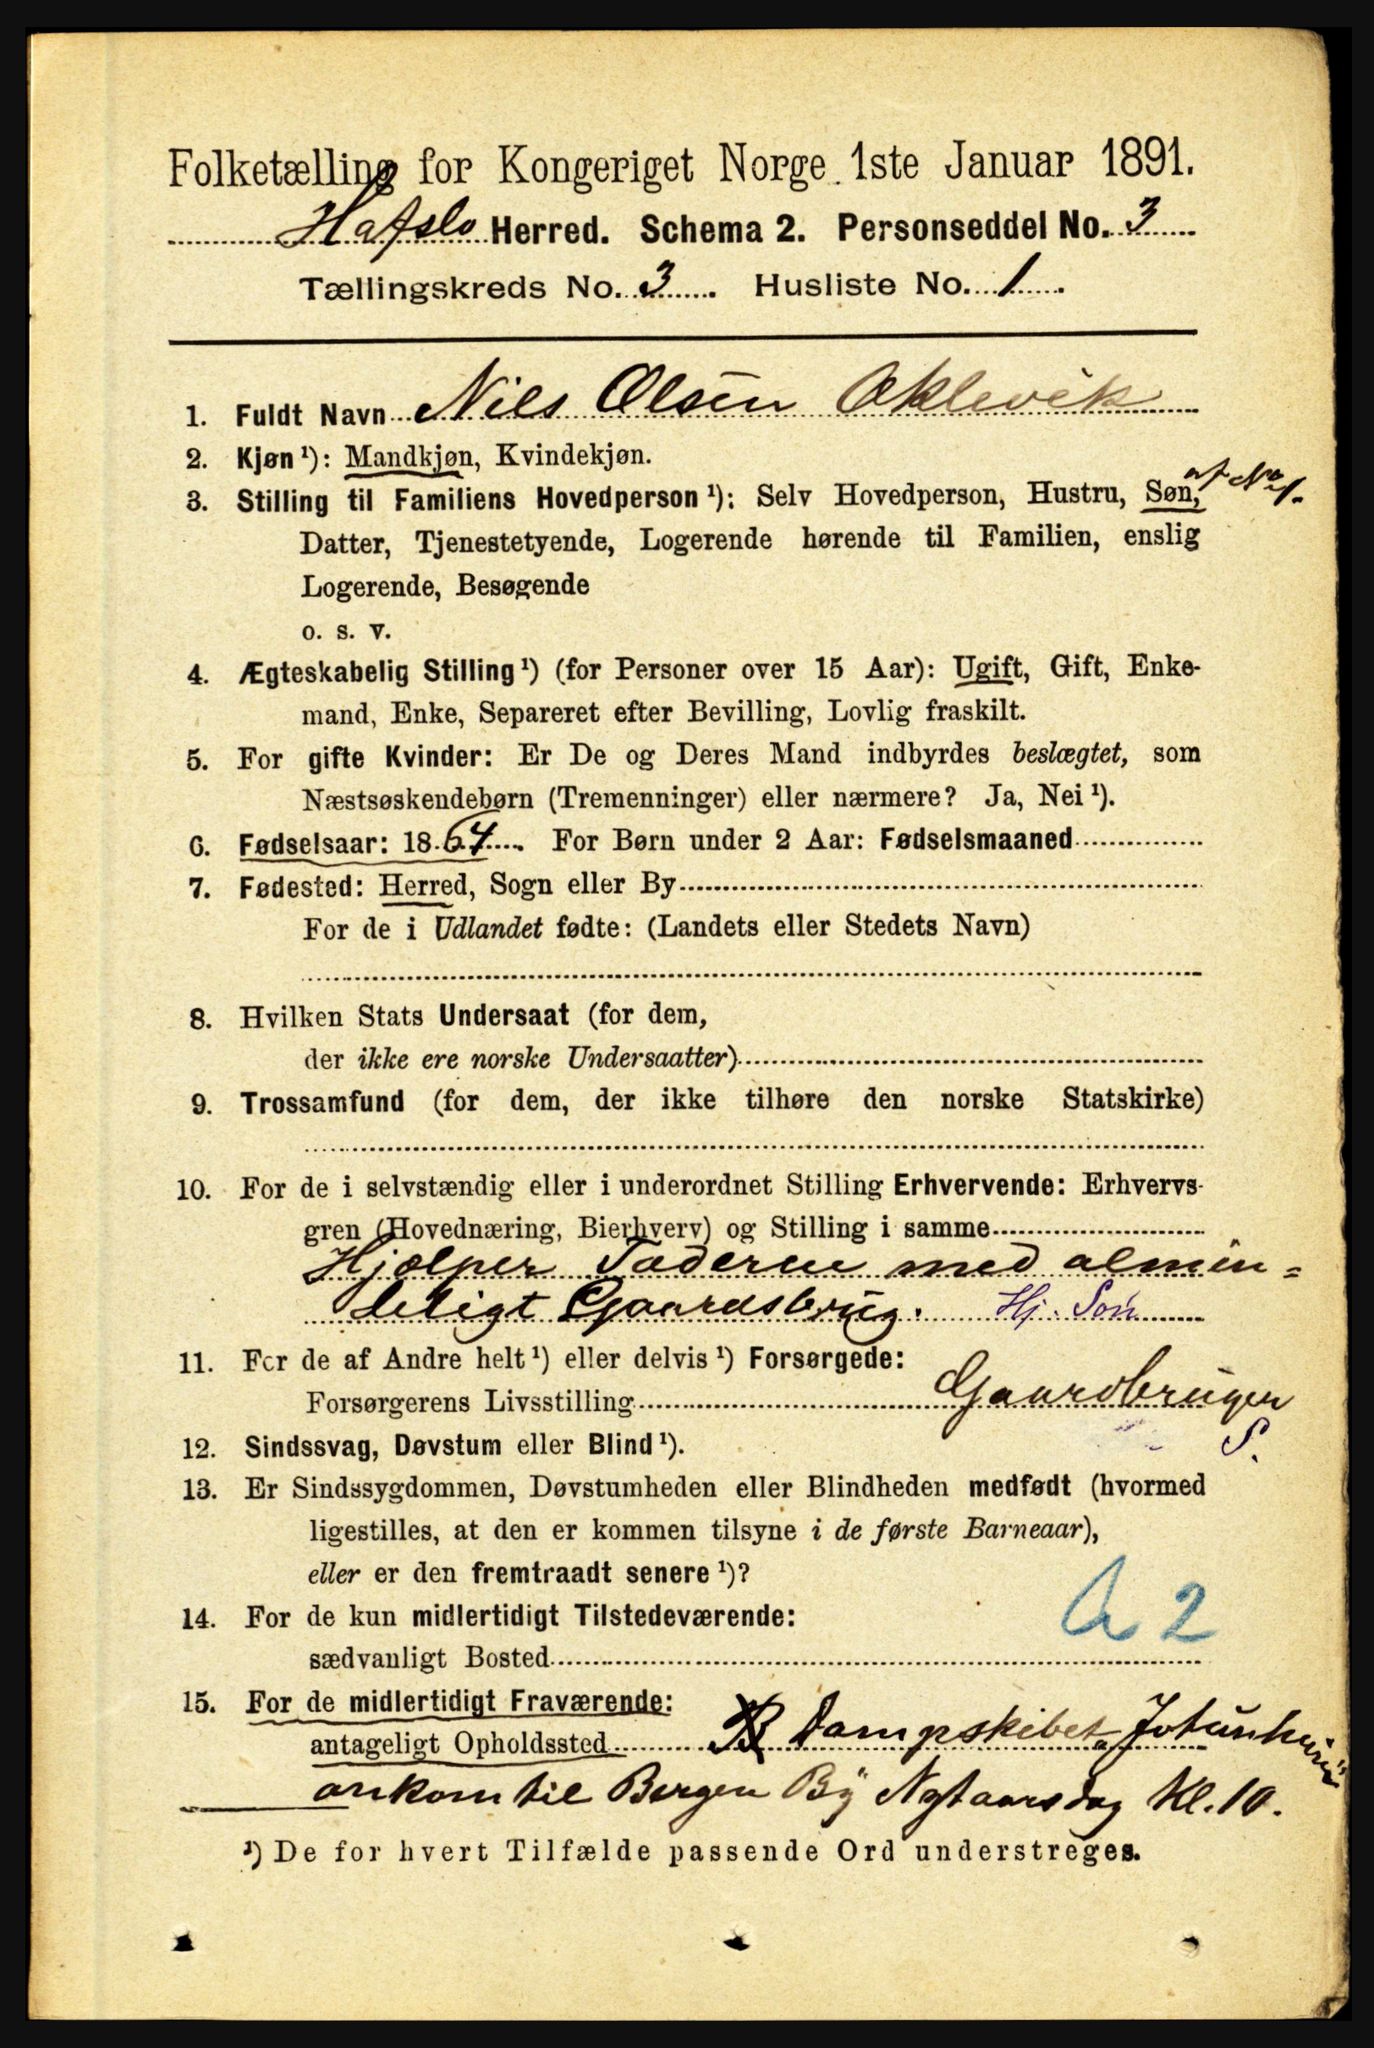 Folketælling for Kongeriget Norge 1ste Januar 1891.
Hafslo Herred. Schema 2. Personseddel No. 3
Tællingskreds No. 3. Husliste No. 1
1. Fuldt Navn Nils Olsen Oklevik
2. Kjøn ¹): Mandkjøn, Kvindekjøn.
af No 1.
3. Stilling til Familiens Hovedperson ¹): Selv Hovedperson, Hustru, Søn,
Datter, Tjenestetyende, Logerende hørende til Familien, enslig
Logerende, Besøgende
o. s. v.
4. Ægteskabelig Stilling ¹) (for Personer over 15 Aar): Ugift, Gift, Enke-
mand, Enke, Separeret efter Bevilling, Lovlig fraskilt.
5. For gifte Kvinder: Er De og Deres Mand indbyrdes beslægtet, som
Næstsøskendebørn (Tremenninger) eller nærmere? Ja, Nei ¹).
6. Fødselsaar: 1864. For Børn under 2 Aar: Fødselsmaaned
7. Fødested: Herred, Sogn eller By
For de i Udlandet fødte: (Landets eller Stedets Navn)
8. Hvilken Stats Undersaat (for dem,
der ikke ere norske Undersaatter)
9. Trossamfund (for dem, der ikke tilhøre den norske Statskirke)
10. For de i selvstændig eller i underordnet Stilling Erhvervende: Erhvervs-
gren (Hovednæring, Bierhverv) og Stilling i samme
Hjælper Faderen med almin=
deligt Gaardsbrug. Hj. Søn
11. For de af Andre helt ¹) eller delvis ¹) Forsørgede:
Forsørgerens Livsstilling Gaardbruger
S.
12. Sindssvag, Døvstum eller Blind ¹).
13. Er Sindssygdommen, Døvstumheden eller Blindheden medfødt (hvormed
ligestilles, at den er kommen tilsyne i de første Barneaar),
eller er den fremtraadt senere ¹)?
A 2
14. For de kun midlertidigt Tilstedeværende:
sædvanligt Bosted
15. For de midlertidigt Fraværende:
antageligt Opholdssted Dampskibet
ankom til Bergen By Nytaarsdag Kl. 10.
¹) De for hvert Tilfælde passende Ord understreges.